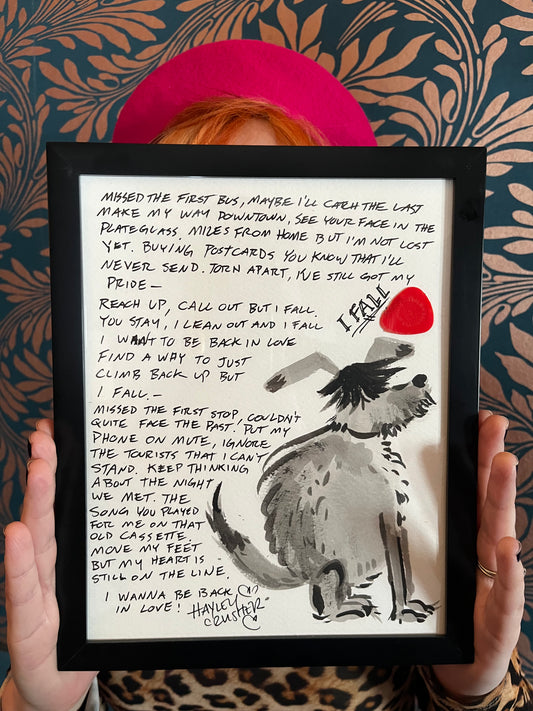 MISSED THE FIRST BUS, MAYBE I'LL CATCH THE LAST
MAKE MY WAY DOWNTOWN, SEE YOUR FACE IN THE
PLATEGLASS. MILES FROM HOME BUT I'M NOT LOST
YET. BUYING POSTCARDS YOU KNOW THAT I'LL
NEVER SEND. TORN APART, I'VE STILL GOT MY
PRIDE —
REACH UP, CALL OUT BUT I FALL.
YOU STAY, I LEAN OUT AND I FALL
I WANT TO BE BACK IN LOVE
FIND A WAY TO JUST
CLIMB BACK UP BUT
I FALL. —
I FALL
MISSED THE FIRST STOP, COULDN'T
QUITE FACE THE PAST. PUT MY
PHONE ON MUTE, IGNORE
THE TOURISTS THAT I CAN'T
STAND. KEEP THINKING
ABOUT THE NIGHT
WE MET. THE
SONG YOU PLAYED
FOR ME ON THAT
OLD CASSETTE.
MOVE MY FEET
BUT MY HEART IS
STILL ON THE LINE.
I WANNA BE BACK
IN LOVE!
HAYLEY
CRUSHER